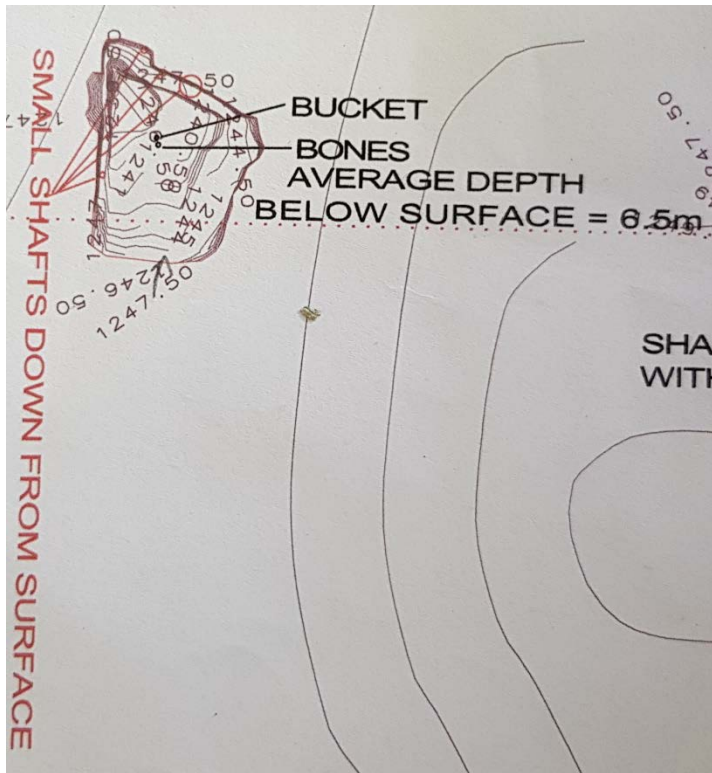 SMALL SHAFTS DOWN FROM SURFACE
BUCKET
BONES
AVERAGE DEPTH
BELOW SURFACE = 6.5m
SHA
WITH
1246.50
1247.50
1244.50
1245
1241
247.50